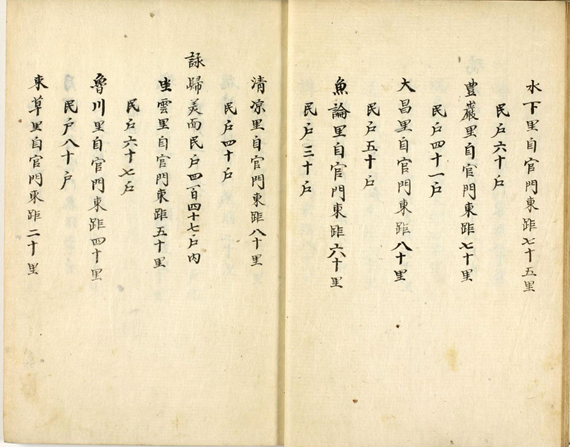 水下里自官門東距七十五里
民戶六十戶
豊巖里自官門東距七十里
民戶四十一戶
大昌里自官門東距八十里
民戶五十戶
魚論里自官門東距六十里
民戶三十戶
清凉里自官門東距八十里
民戶四十戶
詠歸美面民戶四百四十七戶內
生雲里自官門東距五十里
民戶六十七戶
魯川里自官門東距四十里
民戶八十戶
束草里自官門東距二十里